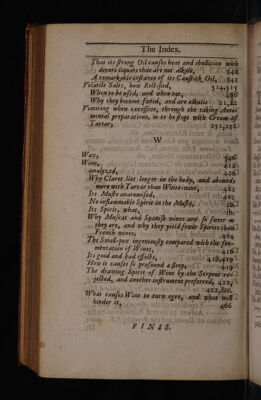 The Index.
That its strong Oil causes heat and ebullition with
divers liquors that are not alkali, 342
A remarkable instance of its Caustick Oil, 343
Volatile Salts, how Rectified, 514, 515
When to be used, and when not, 466
Why they become fœtid, and are alkalis 21, 22
Vomiting when excessive, through the taking Anti-
monial preparations, is to be stopt with Cream of
Tartar, 251, 252
W
Wax,
Wine, 412
analyzed,
Why Claret lies longer in the body, and abounds
more with Tartar than White-wine, 422
Its Muste anatomised,
No inflammable Spirit in the Muste, ib.
Its Spirit, what, ib.
Why Muscat and Spanish wines are so sweet as
they are, and why they yield fewer Spirits than
French wines, 414
The Small-pox ingeniously compared with the fer-
mentation of Wines, 416
Its good and bad effects, 418, 419
How it causes so profound a sleep,
The drawing Spirit of Wine by the Serpent re-
jected, and another instrument preferred, 422,
422, &c.
What causes Wine to turn eger, and what will
hinder it, 466
FINIS.